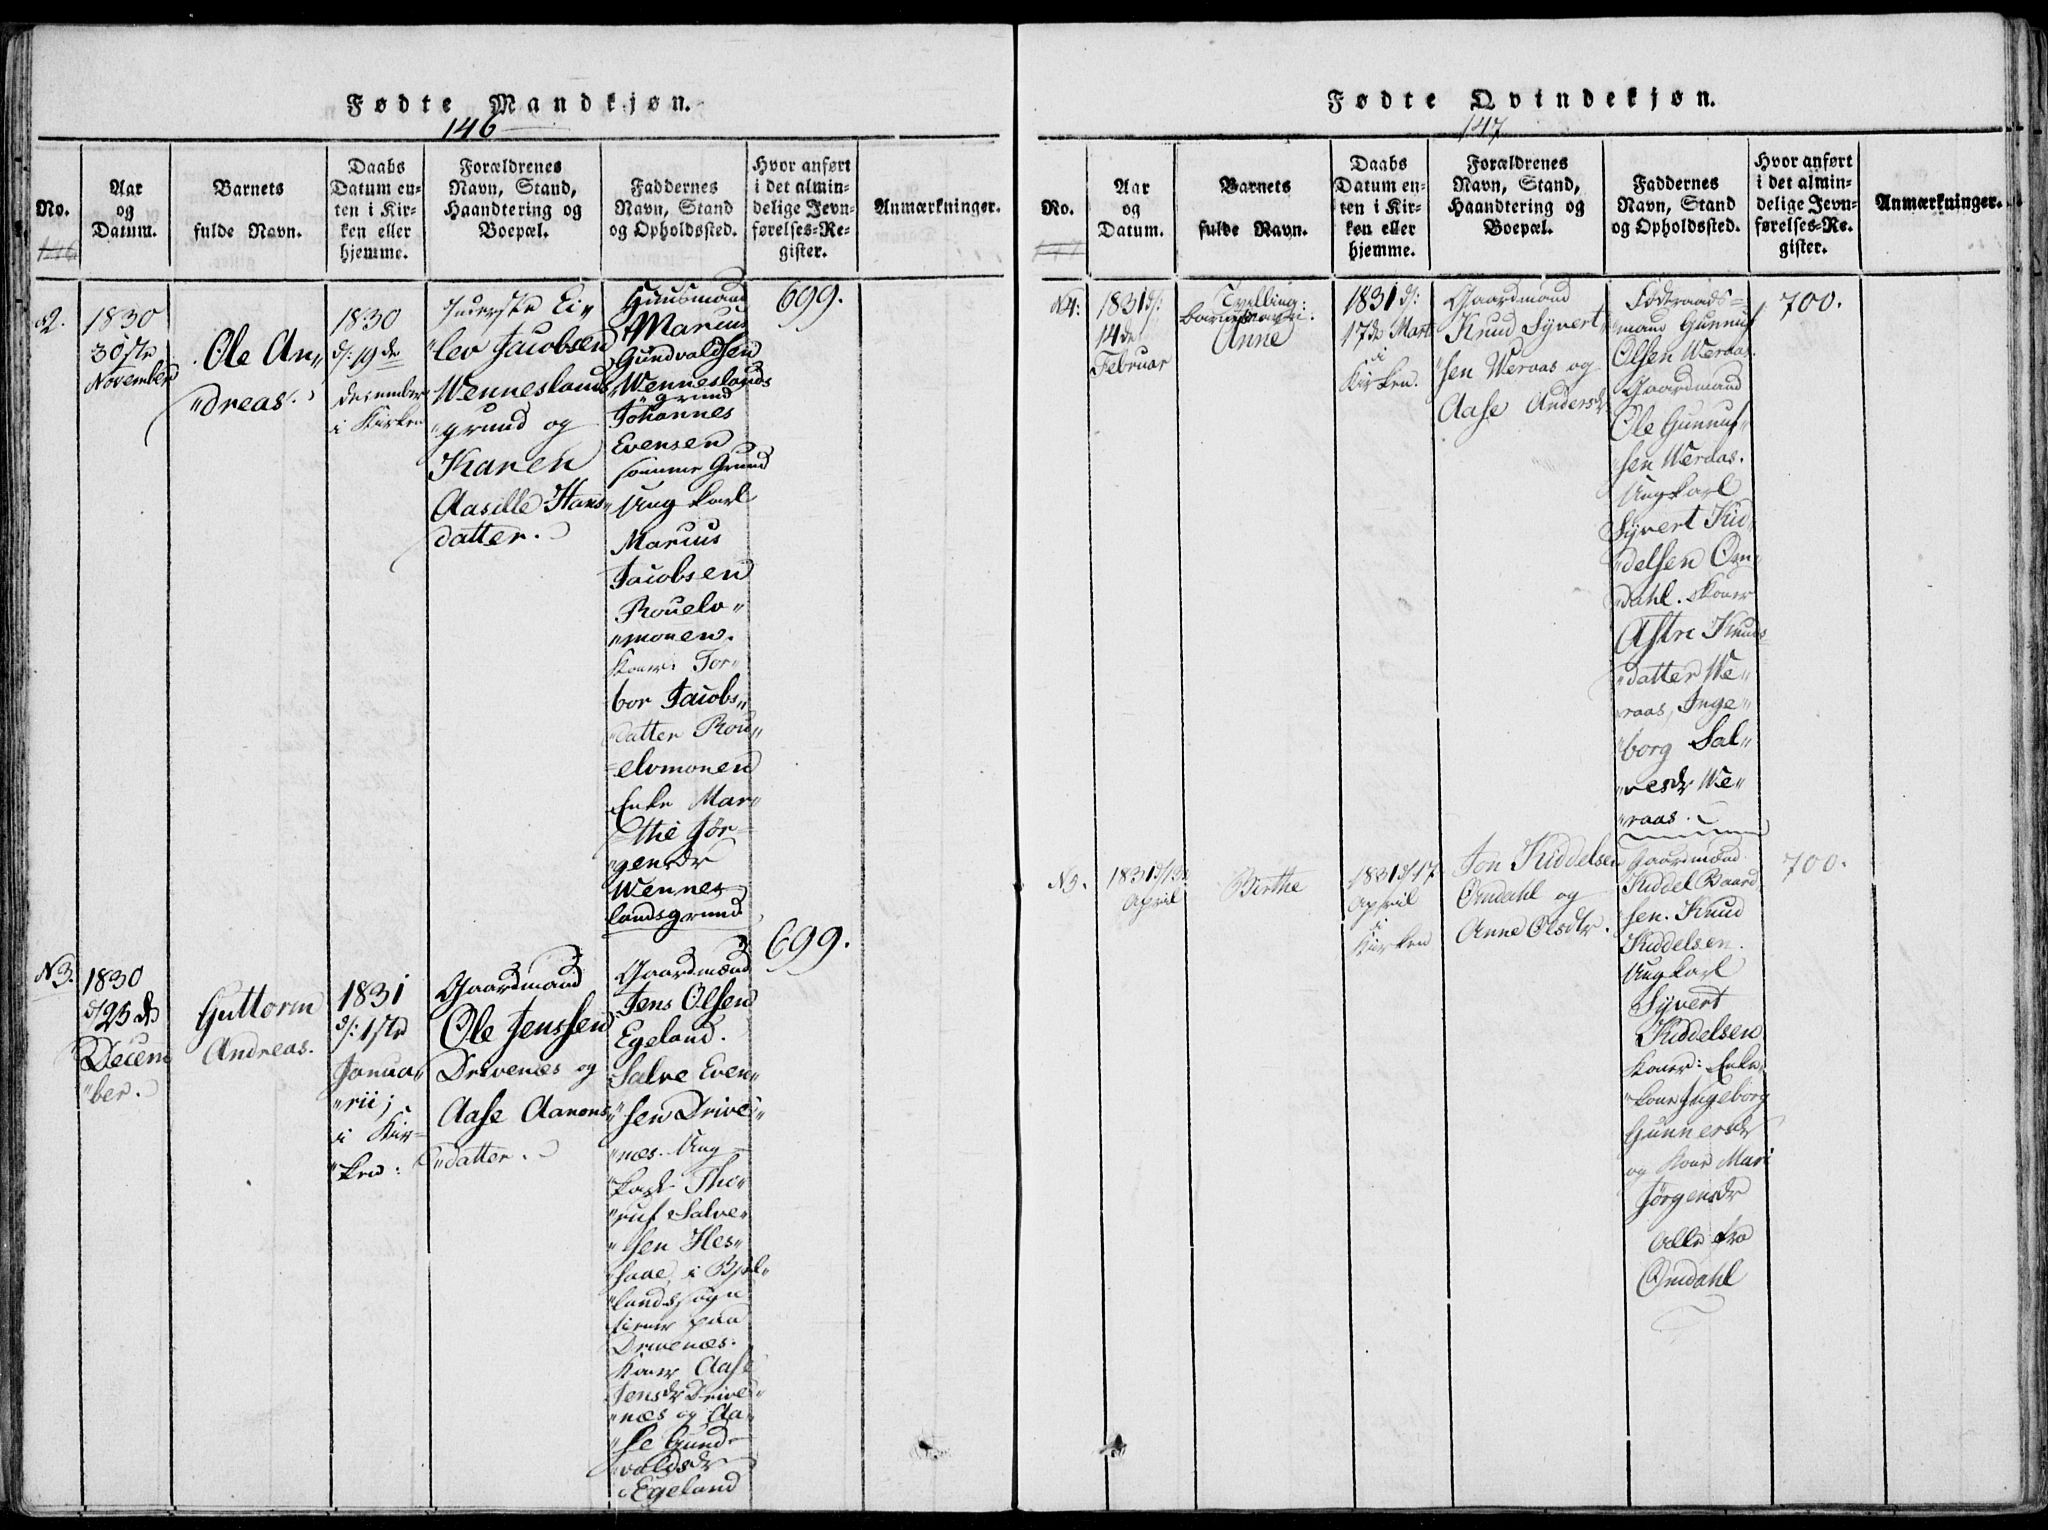 Fødte Mandkjøn.
146
No.
Aar
og
Datum.
Barnets
fulde Navn.
Daabs
Datum en-
ten i Kir-
ken eller
hjemme.
Forældrenes
Navn, Stand,
Haandtering og
Boepæl.
Faddernes
Navn, Stand
og Opholdssted.
Hvor anført
i det almin-
delige Jevn-
førelses-Re-
gister.
Anmærkninger.
146
2.
1830
30te
November
Ole An„
„dreas.
1830
d: 19de
December
i Kirken
Inderste Ei„
„lev Jacobsen
Wenneslands
„grund og
Karen
Aasille Hans„
datter.
Huusmand
Marcus
Gundvaldsen
Wenneslands
„grund
Johannes
Evensen
samme Grund
Ung karl
Marcus
Jacobsen
Rouelv„
„monen.
Koner: Tor„
bor Jacobs„
„datter Rou„
„elvmonen
Enke Mar„
„the Jør„
„gensdr
Wennes
landsgrund
699.
N3.
1830
d/23de
Decem
„ber.
Guttorm
Andreas.
1831
d: 1ste
Janua„
„rii;
i Kir„
„ken:
Gaardmand
Ole Jenssen
Drivenæs og
Aase Aanons„
„datter.
Gaardmænd
Jens Olsen
Egeland.
Salve Even„
„sen Drive„
„næs. Ung„
karl Tho„
„ruf Salve„
„sen Hes„
„saae, i
landssogn
tiener paa
Drivenæs.
Koner Aase
Jensdr Drive„
„næs og Aa„
„se Gund„
„valdsdr
Egeland
699.
Fødte Qvindekjøn.
147
No.
Aar
og
Datum.
Barnets
fulde Navn.
Daabs
Datum en-
ten i Kir-
ken eller
hjemme.
Forældrenes
Navn, Stand,
Haandtering og
Boepæl.
Faddernes
Navn, Stand
og Opholdssted.
Hvor anført
i det almin-
delige Jevn-
førelses-Re-
gister.
Anmærkninger.
147
N4:
1831 d:
14de
Februar
Tvelling:
Anne
1831 d:
17de Marti
i
Kirken.
Gaardmand
Knud Syvert„
„sen Weraas og
Aase Andersdr
„mand Gunnuf
Olsen Weraas.
Gaardmand
Ole Gunnuf„
„sen Weraas.
Ungkarl
Syvert Kid„
„delsen Om„
„dahl. Koner
Astri Knuds„
„datter We„
„raas, Inge„
„borg Sal„
„vesdr We„
„raas.
700.
N5.
1831 d/13de
April
Birthe
1831 d/17
April
i
Kirken
Jon Kiddelsen
Omdahl og
Anne Olsdtr.
Gaardmænd
Kiddel Baard
„sen. Knud
Kiddelsen.
Ungkarl
Syvert
Kiddelsen
Koner: Enke„
„kone Ingeborg
Gunnersdr
og Kone Mari
Jørgensdr
Alle fra
Omdahl
700.